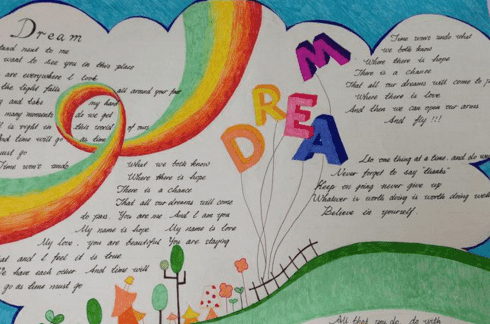 Dream
stand next to me
want to see you in this place
are everywhere I look
the light falls all around your face
and take my hand
many moments do we get
is right in this world of ours
And time will go as time
must go
Time won't undo
What we both know
Where there is hope
There is a chance
That all our dreams will come
to pass. You are me. And I am you
My name is hope. My name is love
My love, you are beautiful You are staying
at and I feel it is true
We have each other And time will
go as time must go
DREAM
Time won't undo what
we both know
Where there is hope
There is a chance
That all our dreams will come to
Where there is love
And then we can open our arms
And fly !!!
Do one thing at a time, and do
Never forget to say "thanks"
Keep on going never give up
Whatever is worth doing is worth doing well
Believe in yourself.
All that you do, do with